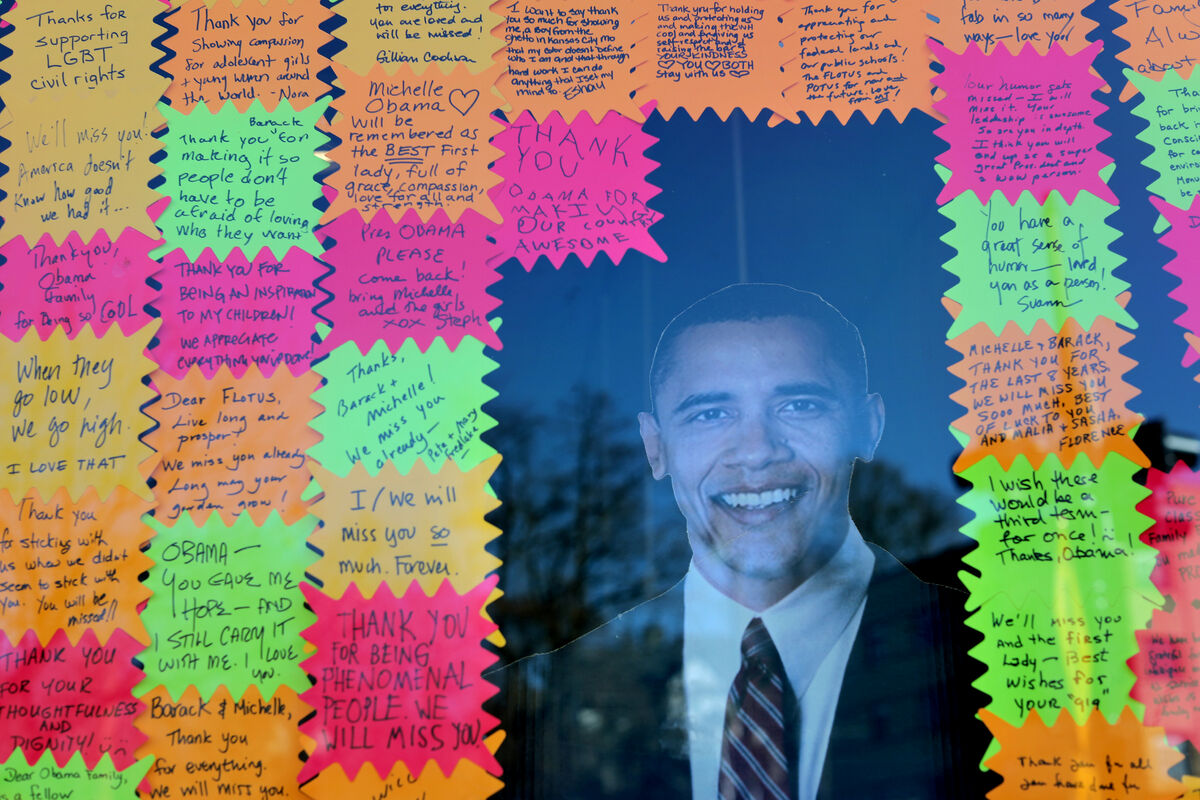 Thanks for
supporting
LGBT
civil rights
We'll miss you!
America doesn't
know how good
we had it...
Thank you,
Obama
family
for being so COOL
When they
go low,
we go high.
I LOVE THAT
Thank you
for sticking with
us when we didn't
seem to stick with
you. You will be
missed!!
THANK YOU
FOR YOUR
THOUGHTFULNESS
AND
DIGNITY!
Dear Obama Family,
a fellow
Thank you for
showing compassion
for adolescent girls
+ young women around
the world. -Nora
Thank you Barack for
making it so
people don't
have to be
afraid of loving
who they want
THANK YOU FOR
BEING AN INSPIRATION
TO MY CHILDREN!
WE APPRECIATE
EVERYTHING YOU'VE DONE!
Dear FLOTUS,
Live long and
prosper!
We miss you already
Long may your
garden grow!
OBAMA —
YOU GAVE ME
HOPE — AND
I STILL CARRY IT
WITH ME. I LOVE
YOU.
Barack & Michelle,
Thank you
for everything.
We will miss you.
for everything.
you are loved and
will be missed!
Gillian
Michelle
Obama
will be
remembered as
the BEST First
lady, full of
grace, compassion,
love for all and
strength.
Pres OBAMA
PLEASE
come back!
bring Michelle,
and the girls
xox Steph
Thanks,
Barack +
Michelle!
We miss you
already—
Pete + Mary
I/We will
miss you so
much. Forever.
THANK YOU
FOR BEING
PHENOMENAL
PEOPLE. WE
WILL MISS YOU.
I want to say thank
you so much for showing
me, a boy from the
ghetto in Kansas City Mo
that my color doesn't define
who I am and that through
hard work I can do
anything that I set my
mind to
THANK
YOU
OBAMA FOR
MAKING
OUR country
AWESOME
Thank you for holding
us and protecting us
and making the WH
cool and giving us
self-respect and
raising the bar of
KINDNESS
YOU BOTH
Stay with us
Thank you for
appreciating and
protecting our
federal lands and
our public schools!
The FLOTUS and
POTUS for now and
the future. Love
from MI!
fab in so many
ways—love you
Your humor gets
missed — I will
miss it. Your
leadership is awesome
So are you in depth.
I think you will
end up as a super
great President and
a wow person!
You have a
great sense of
humor — loved
you as a person.
Suann
MICHELLE + BARACK,
THANK YOU FOR
THE LAST 8 YEARS.
WE WILL MISS YOU
SOOO MUCH. BEST
OF LUCK TO YOU
AND MALIA + SASHA.
FLORENCE
I wish there
would be a
third term—
for once!
Thanks, Obama!
We'll miss you
and the first
Lady — Best
wishes for
your "gig"
Thank you for all
you have done for
Family